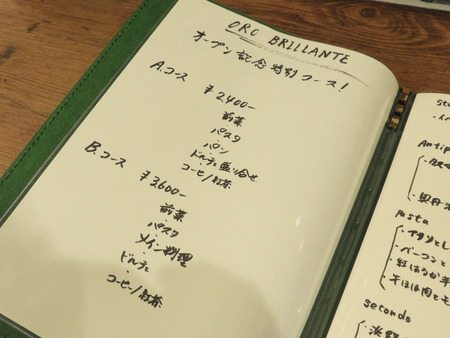 ORO BRILLANTE
オープン記念特別コース!
A.コース
¥2400-
前菜
パスタ
パン
ドルチェ盛り合せ
コーヒー/紅茶
B.コース
¥3600-
前菜
パスタ
メイン料理
ドルチェ
コーヒー/紅茶
Antip
Pasta
・ベーコンと
・紅はるか
secondo